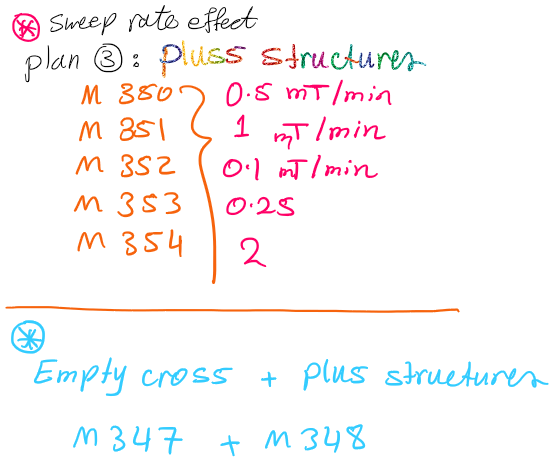 Sweep rate effect
plan ③: pluss structures
M 350 0.5 mT/min
M 351 1 mT/min
M 352 0.1 mT/min
M 353 0.25
M 354 2
Empty cross + plus structures
M347 + M348